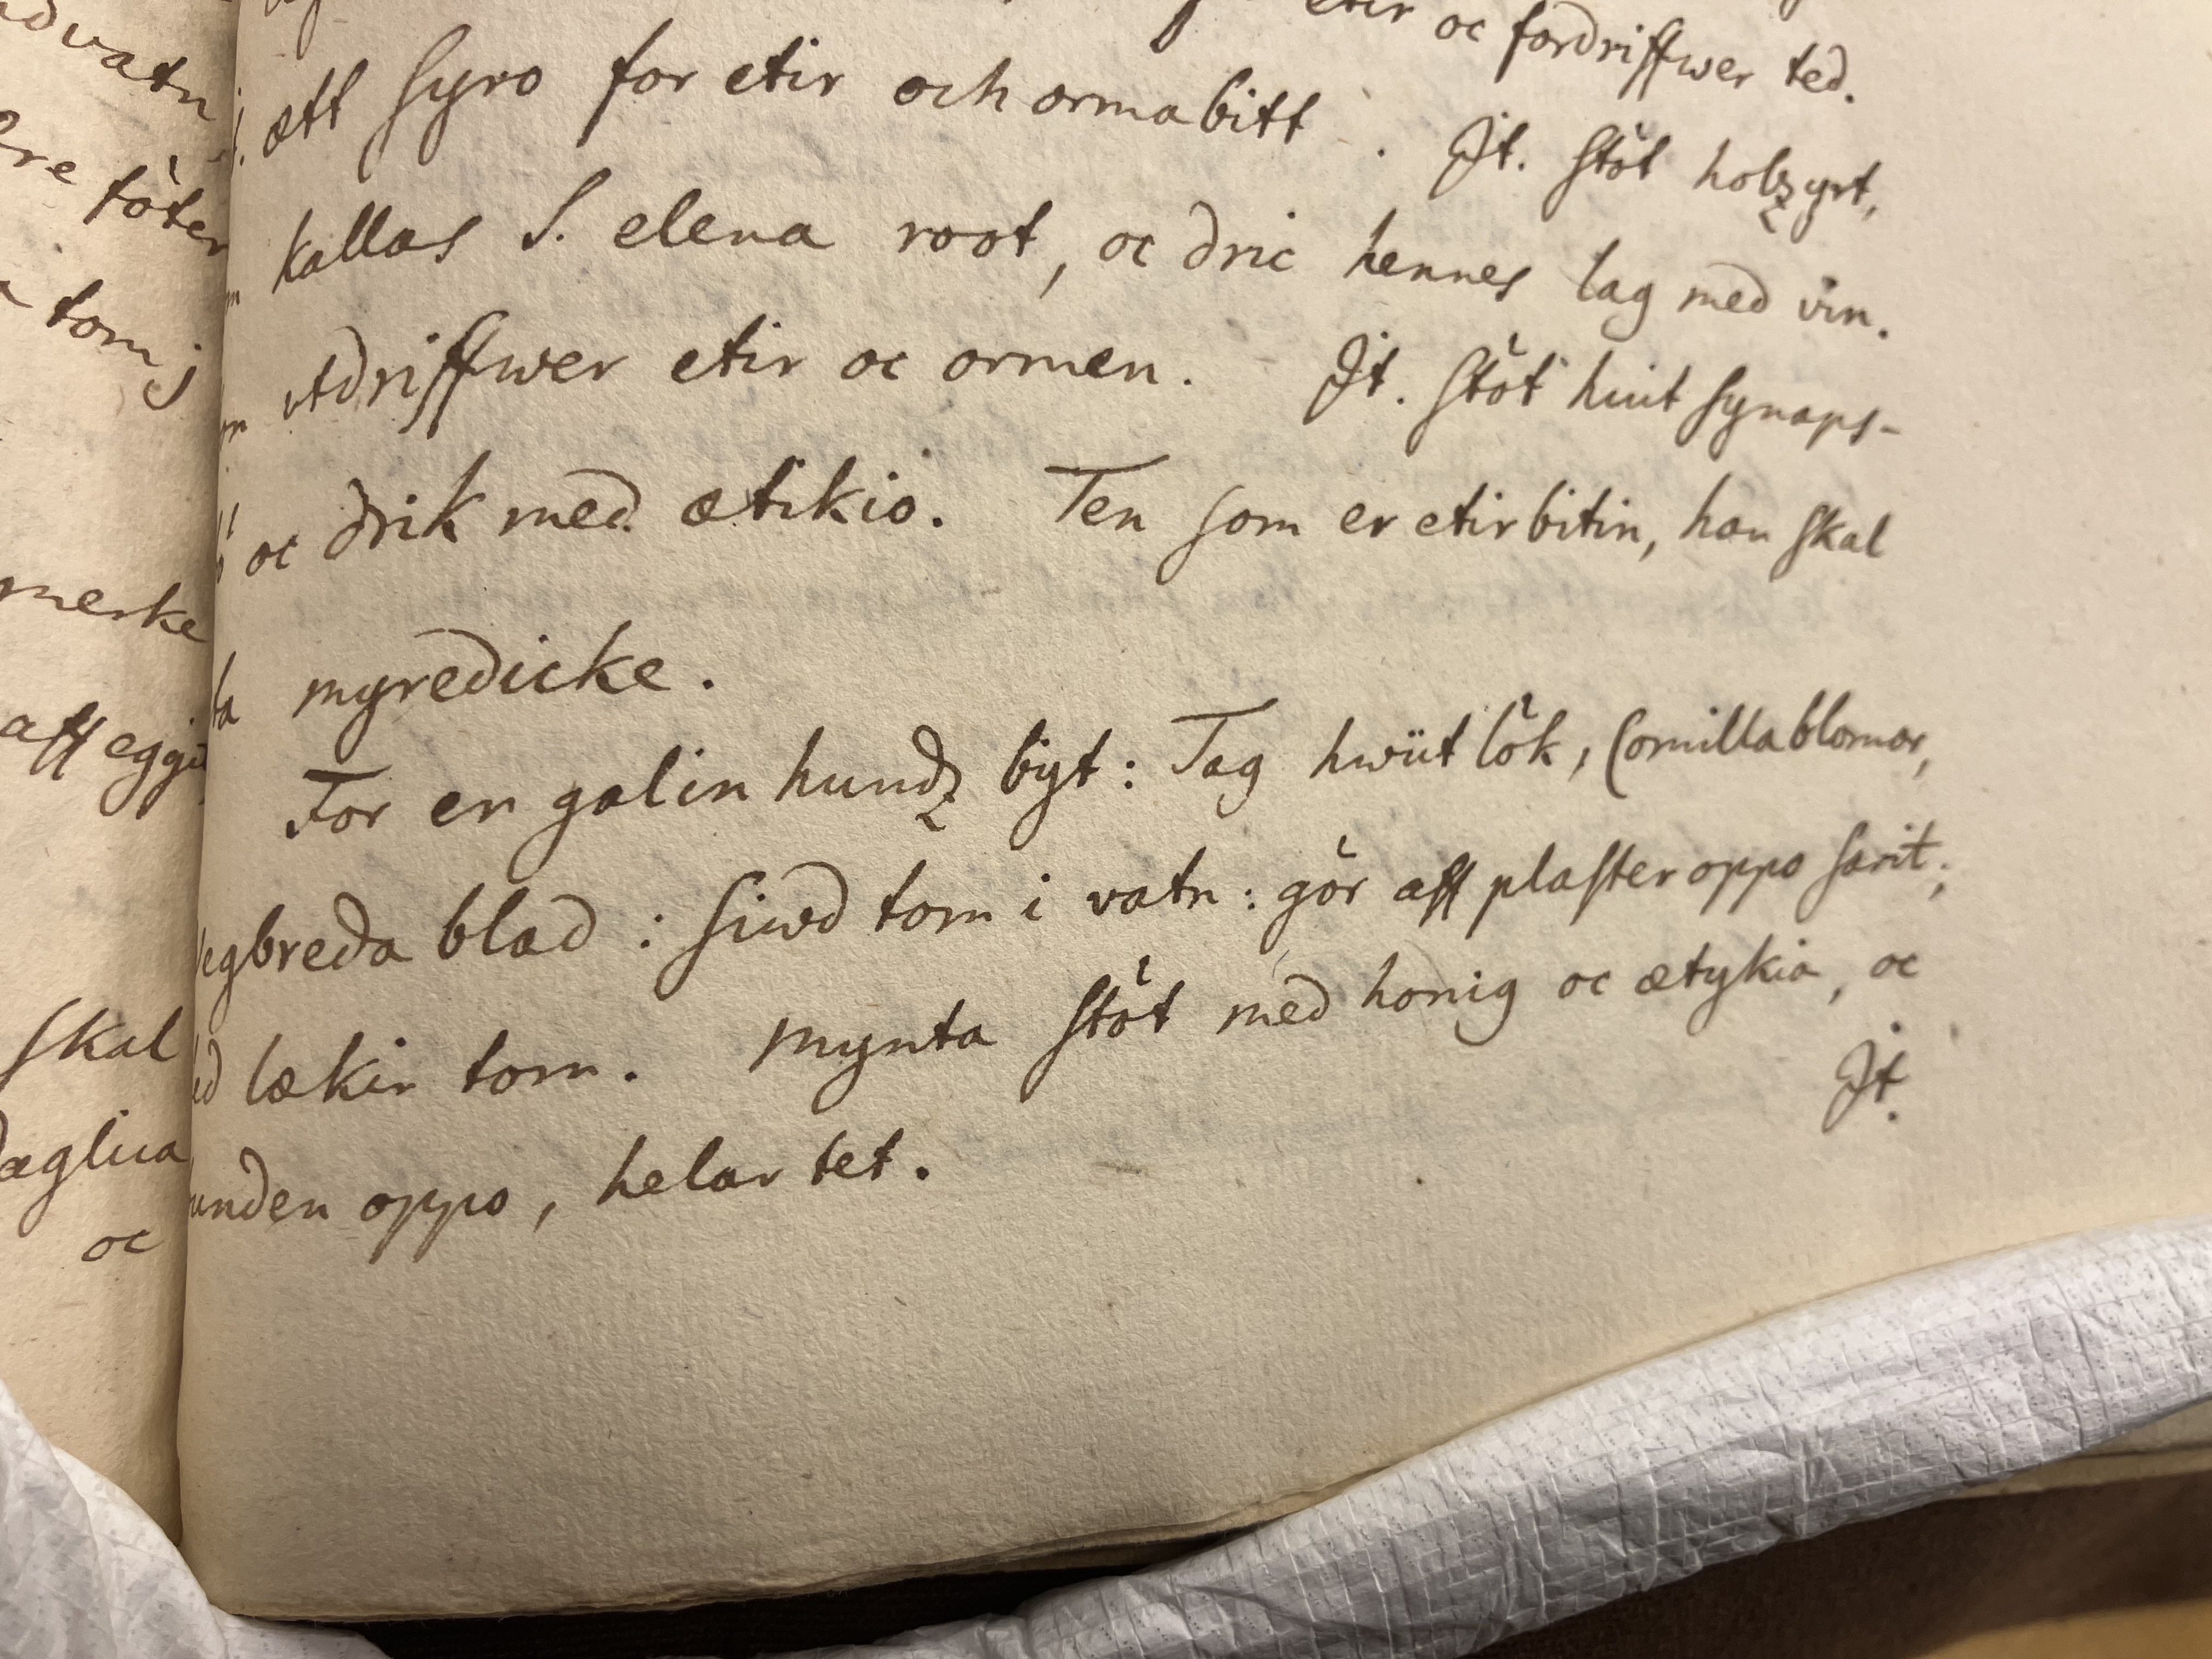 oc fordriffwer ted.
ett syro for etir och ormabitt. Jt. stöt holzyrt,
kallas S. elena root, oc dric hennes lag med vin.
utdriffwer etir oc ormen. Jt. stöt huit synaps-
oc drik med ætikio. Ten som er etirbitin, han skal
myredicke.
For en galin hundz byt: Tag hwiit lök, Comillablomor,
egbreda blad: siwd tom i vatn: gör aff plaster oppo sarit;
lækir tom. Mynta stöt med honig oc ætykia, oc
unden oppo, helar tet.
Jt.
vatn
töter
tom j
merke
aff eggi
skal
daglica
oc